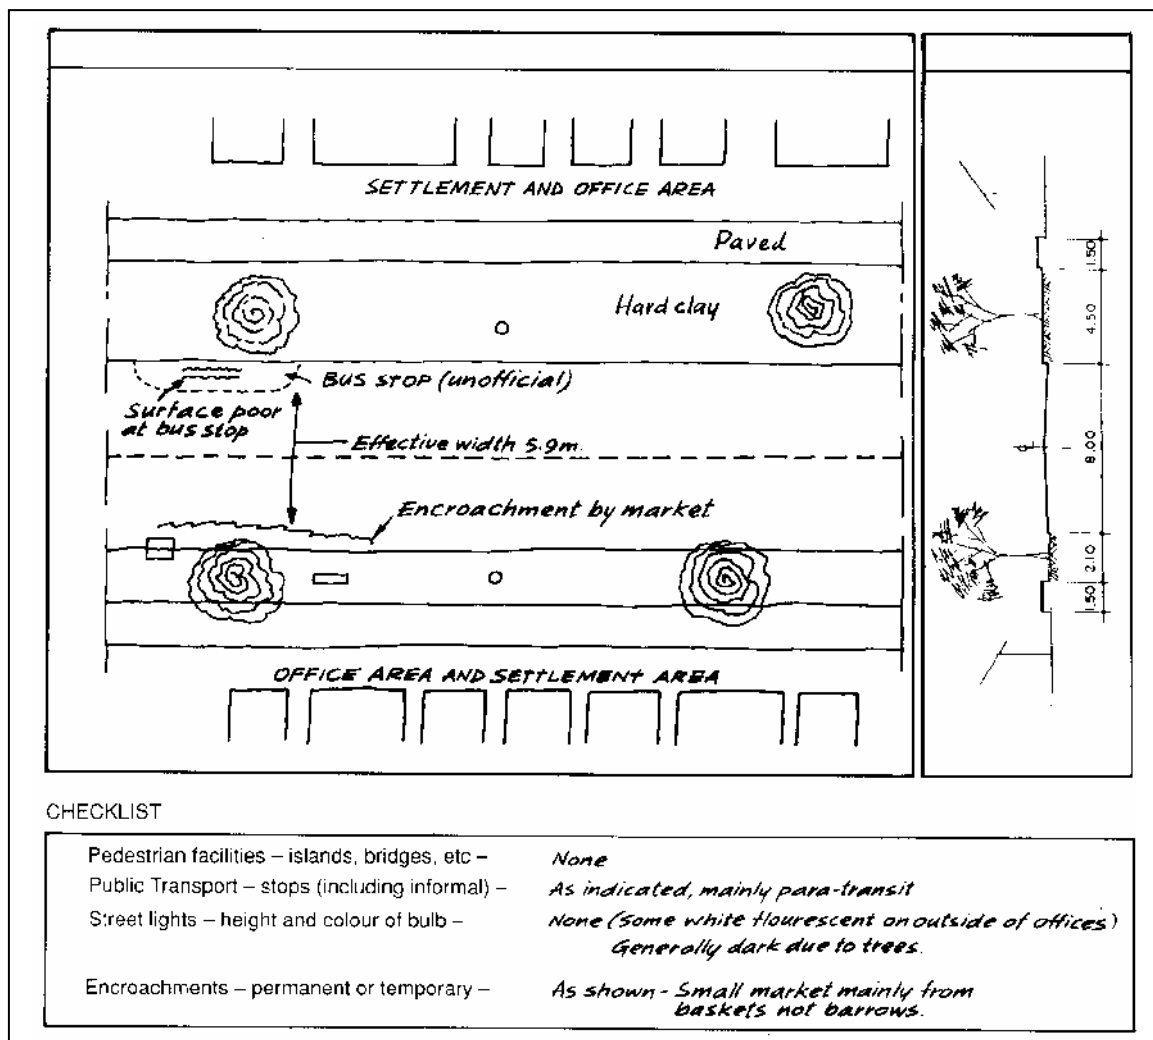 SETTLEMENT AND OFFICE AREA
Paved
Hard clay
BUS STOP (unofficial)
Surface poor
at bus stop
Effective width 5.9m.
Encroachment by market
OFFICE AREA AND SETTLEMENT AREA
1.50
4.50
8.00
2.10
1.50
CHECKLIST
Pedestrian facilities – islands, bridges, etc – None
Public Transport – stops (including informal) – As indicated, mainly para-transit
Street lights – height and colour of bulb – None (Some white flourescent on outside of offices)
Generally dark due to trees.
Encroachments – permanent or temporary – As shown - Small market mainly from
baskets not barrows.